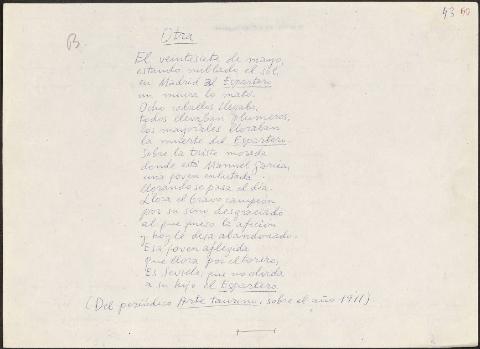 43 60
B.
Otra
El veintisiete de mayo,
estando nublado el sol,
en Madrid al Espartero
un miura lo mató.
Ocho caballos llegaba,
todos llevaban plumeros,
los mayorales lloraban
la muerte del Espartero.
Sobre la triste morada
donde está Manuel García,
una joven enlutada
llorando se pasa el día.
Llora el bravo campeón
por su sino desgraciado
al que puso la afición
y hoy le deja abandonado.
Esa joven aflegida
que llora por el torero,
Es Sevilla, que no olvida
a su hijo el Espartero
(Del periódico Arte taurino, sobre el año 1911)